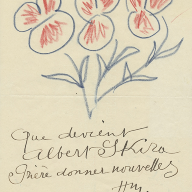 Que devient
Albert Skira
Prière donner nouvelles
HM.